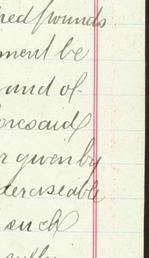 red pounds
ment be
and of
oresaid
r given by
xerciseable
such